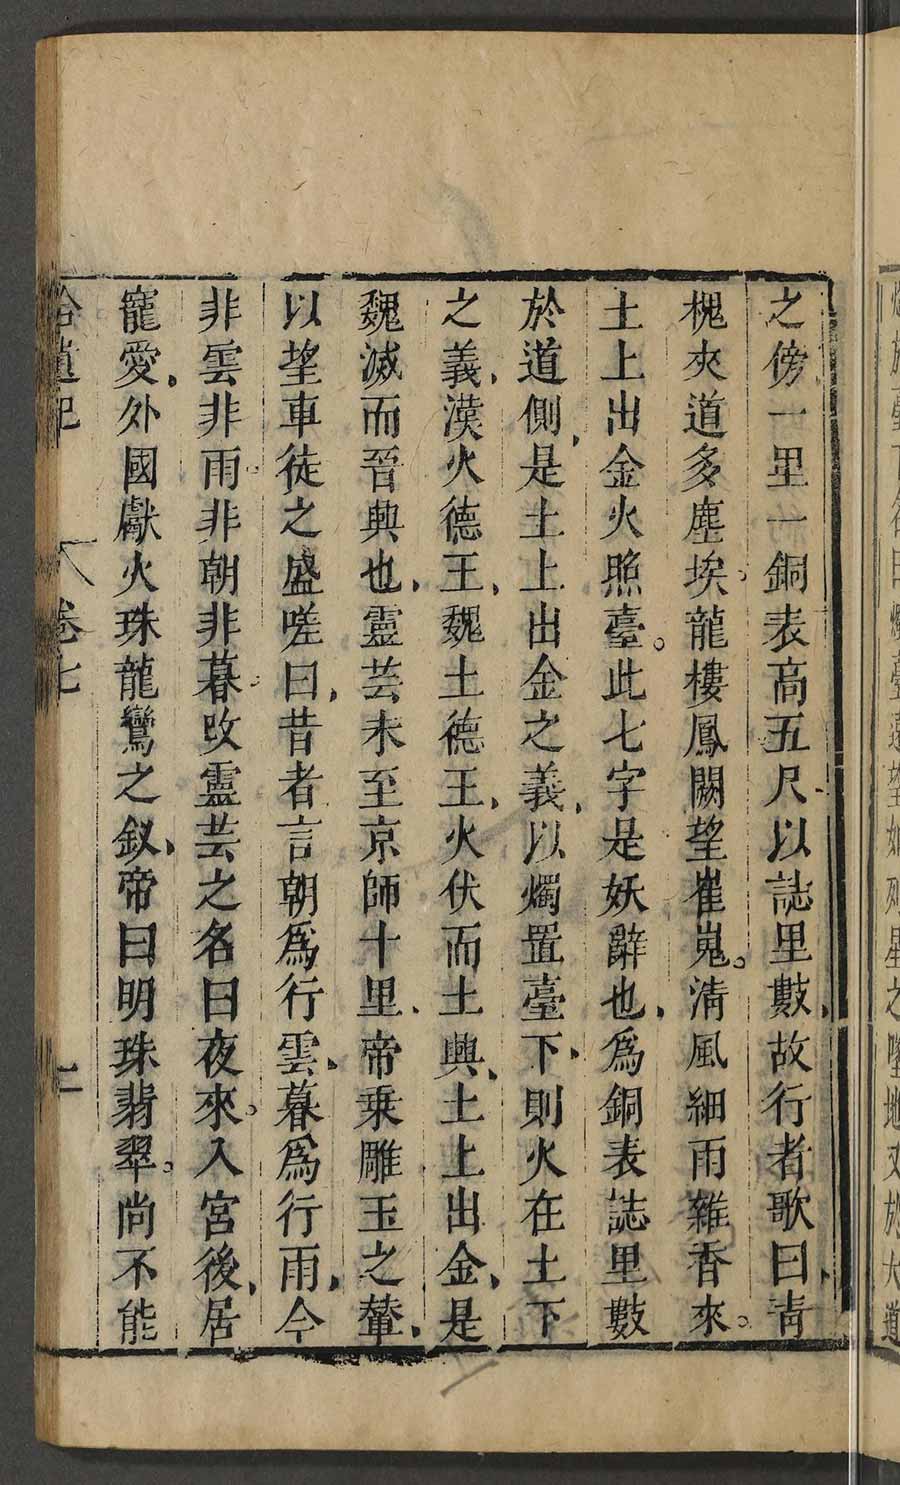 之傍一里一銅表高五尺以誌里數故行者歌曰靑
槐夾道多塵埃龍樓鳳闕望崔嵬清風細雨雜香來
土上出金火照臺此七字是妖辭也爲銅表誌里數
於道側是土上出金之義以燭置臺下則火在土下
之義漢火德王魏土德王火伏而土興土上出金是
魏滅而晉興也靈芸未至京師十里帝乗雕玉之輦
以望車徒之盛嗟曰昔者言朝爲行雲暮爲行雨今
非雲非雨非朝非暮改靈芸之名曰夜來入宮後居
寵愛外國獻火珠龍鸞之釵帝曰明珠翡翠尚不能
拾遺記 卷七